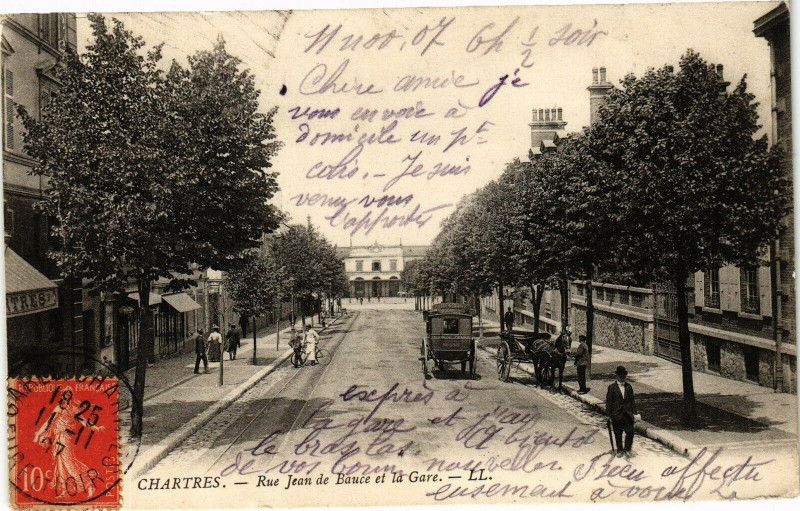 11 nov. 07 6h ½ soir
Chère amie je
vous envoie à
domicile un pt
colis. - Je suis
venu vous
l'apporter
exprès à
la gare et j'ai
le bras las. A bientôt
de vos bonnes nouvelles
Bien affectu
eusement à vous 2
TRES
REPUBLIQUE FRANÇAISE
10c
18 25
11-11
07
LOIR
CHARTRES. - Rue Jean de Bauce et la Gare. - LL.